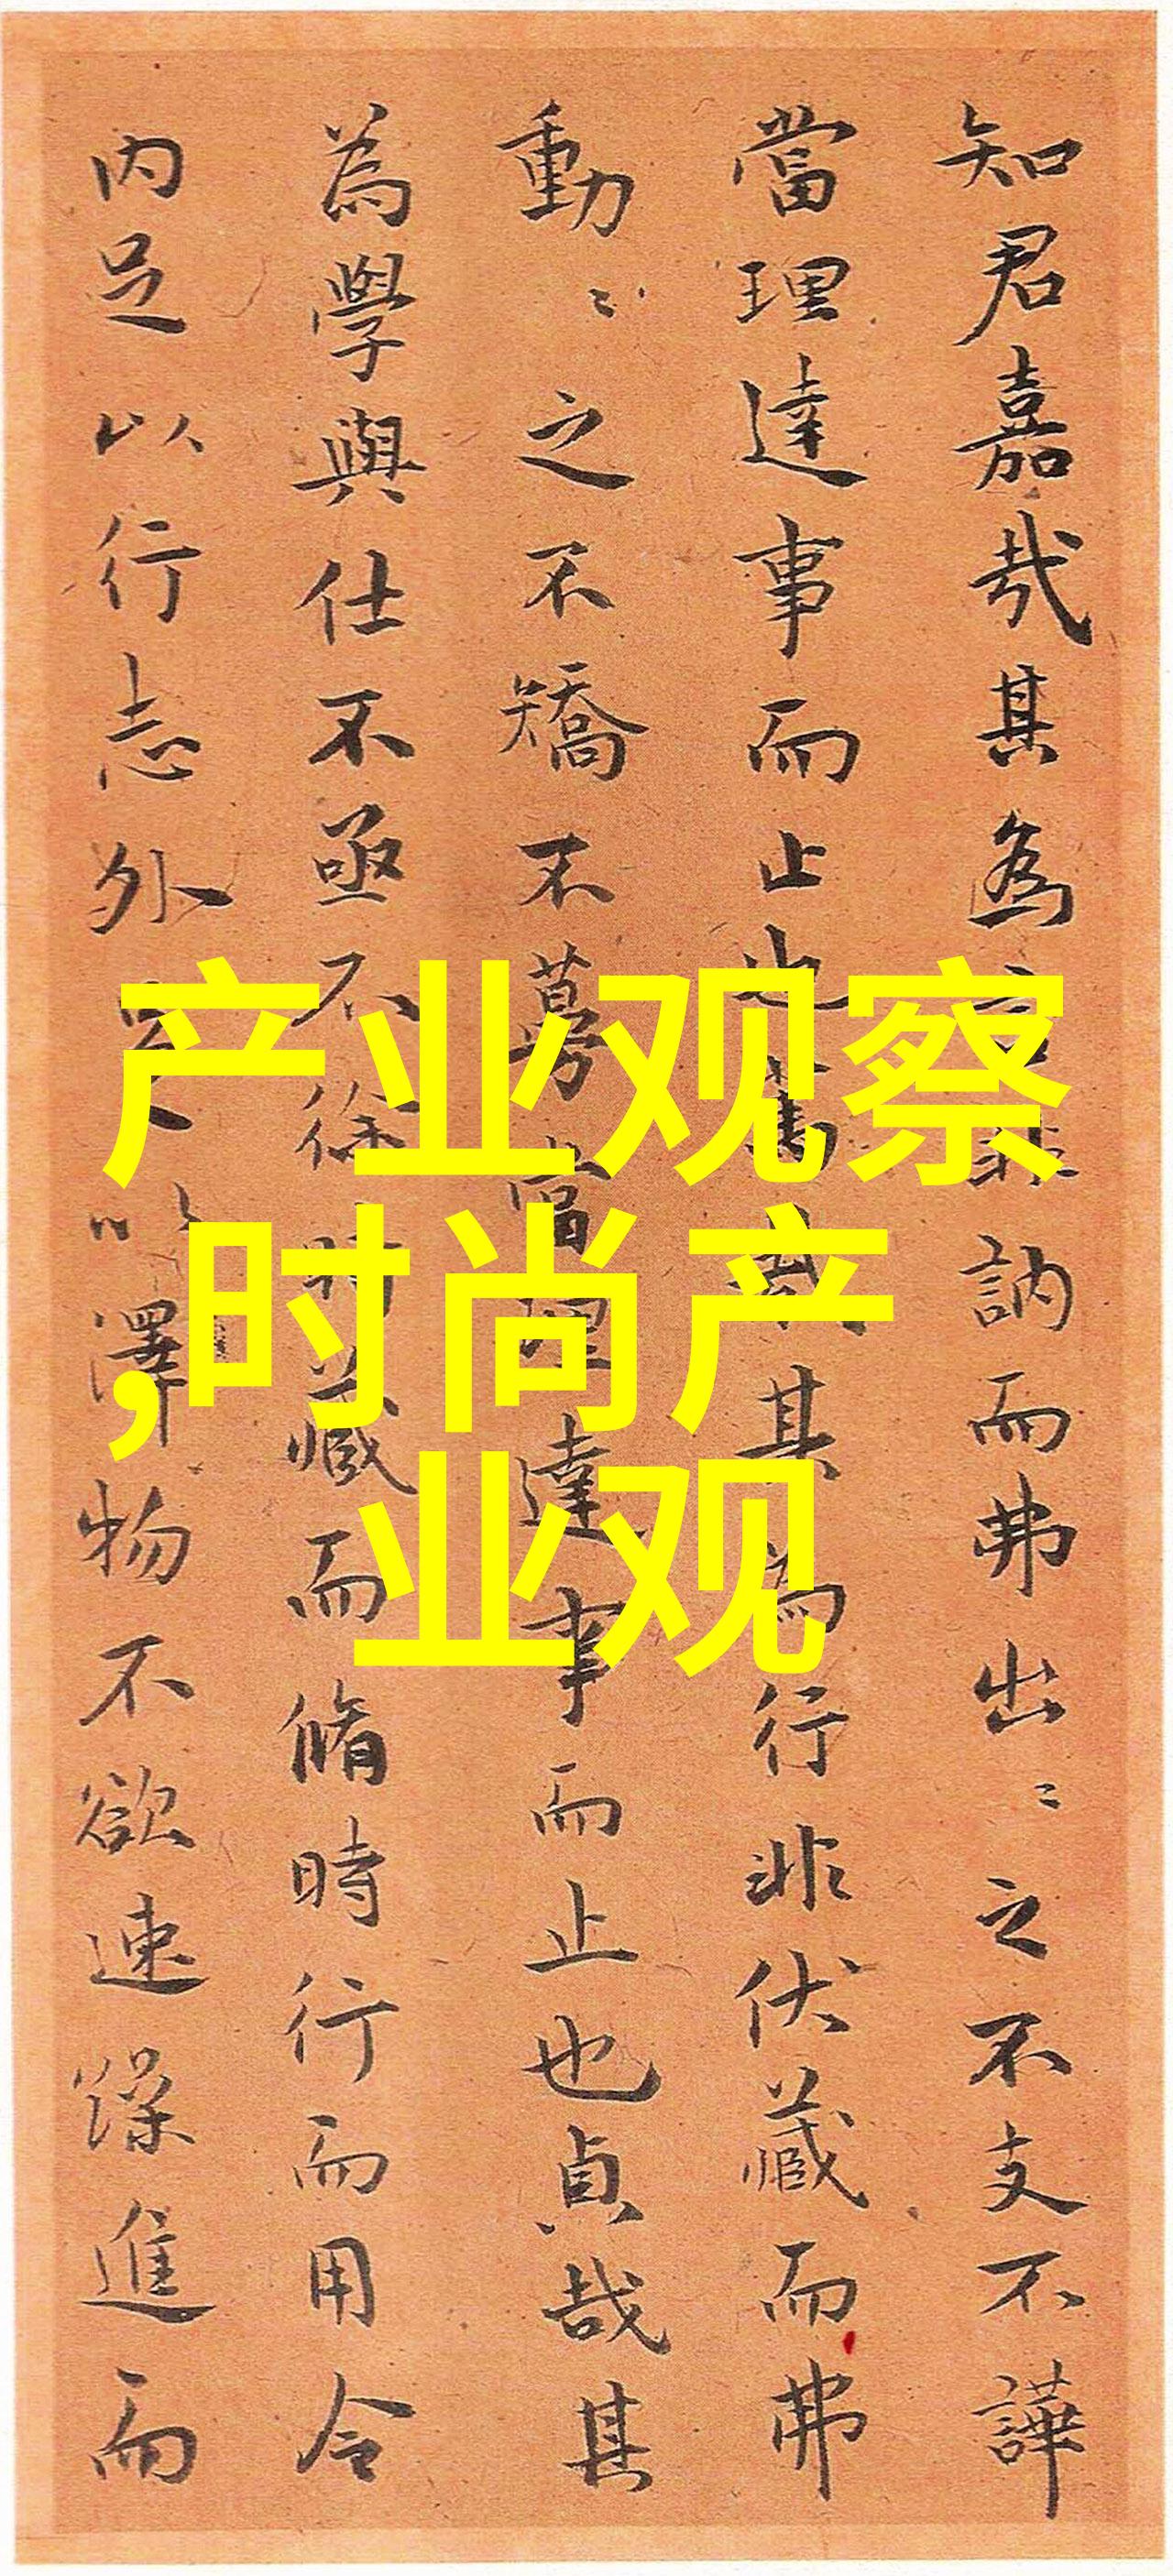 知君嘉哉其為言非訥而弗出〻之不支不譁
當理達事而止也哉其為行非伏藏而弗
動〻之不矯不當理達事而止也貞哉其
為學與仕不亟不徐時藏而脩時行而用令
内足以行志外足以澤物不欲速躁進而
产业观察
,时尚产
业观